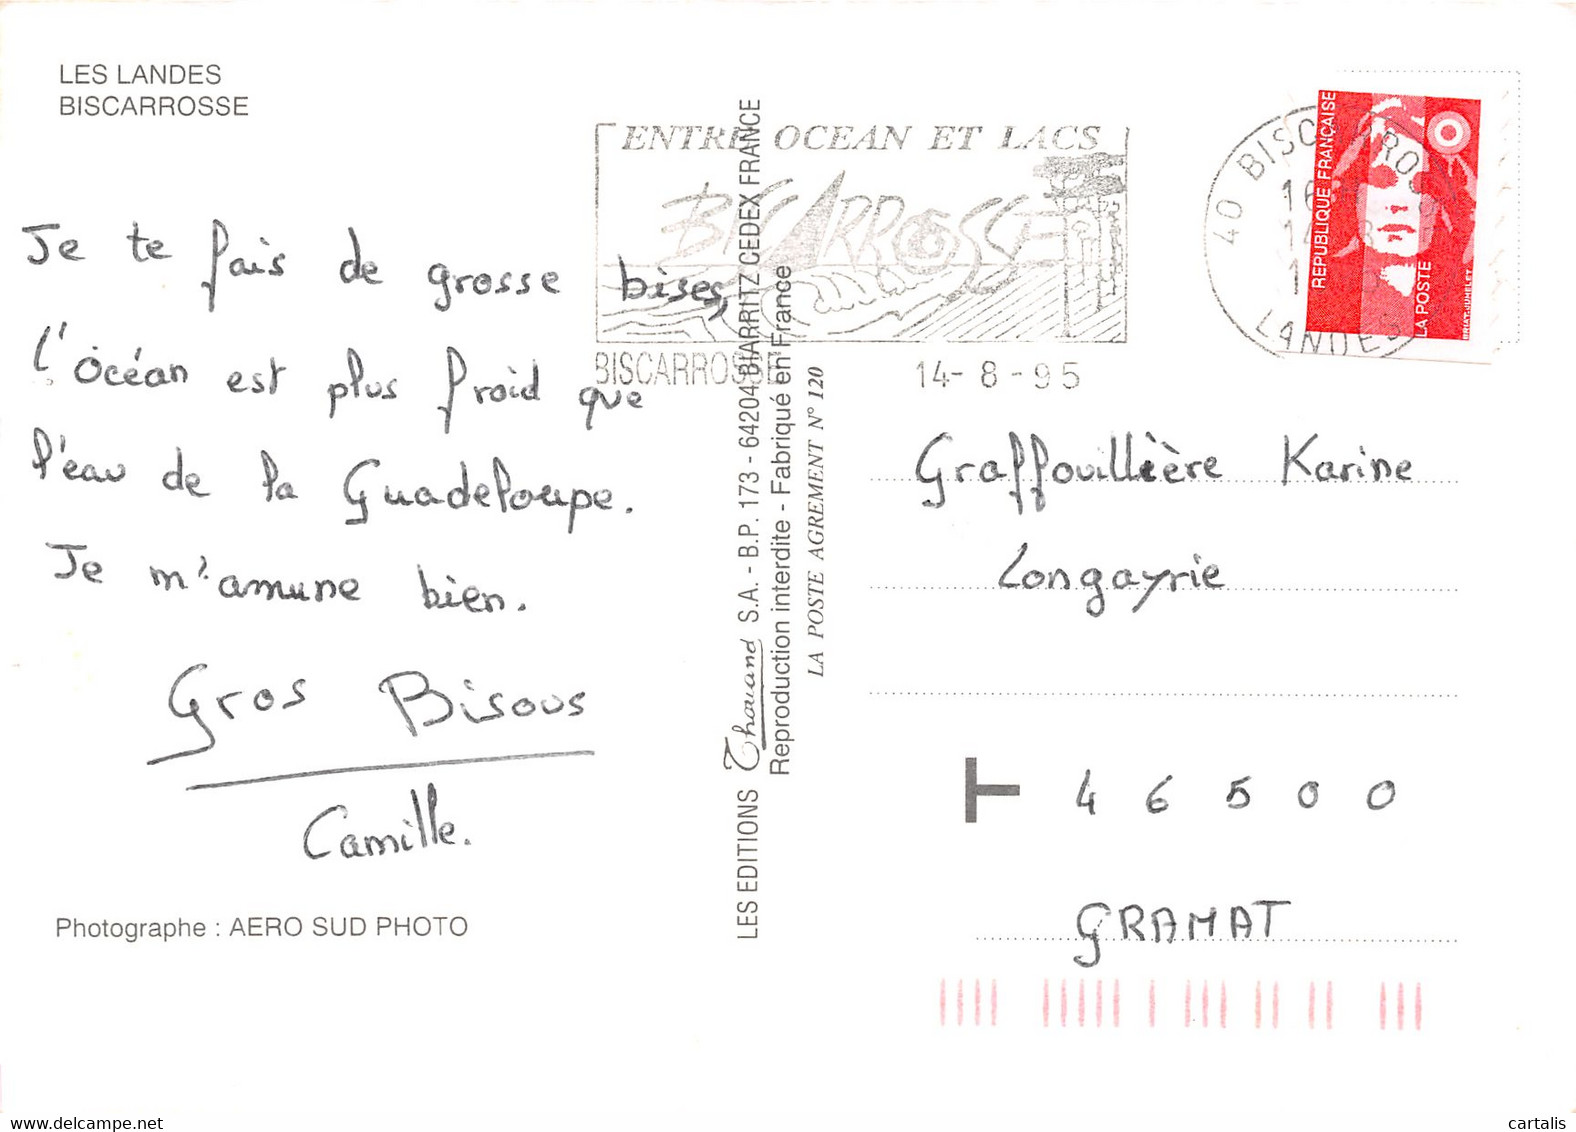 LES LANDES
BISCARROSSE
Je te fais de grosse bises,
l'océan est plus froid que
l'eau de la Guadeloupe.
Je m'amune bien.
Gros Bisous
Camille.
Photographe : AERO SUD PHOTO
LES EDITIONS Thouand S.A. - B.P. 173 - 64204 BIARRITZ CEDEX FRANCE
Reproduction interdite - Fabriqué en France
LA POSTE AGREMENT N° 120
ENTRE OCEAN ET LACS
BISCARROSSE
BISCARROSSE 14-8-95
40 BISCARROSSE
LANDES
REPUBLIQUE FRANÇAISE
LA POSTE
BRIAT-JUMELET
Graffouillière Karine
Longayrie
T 46500
GRAMAT
cartalis